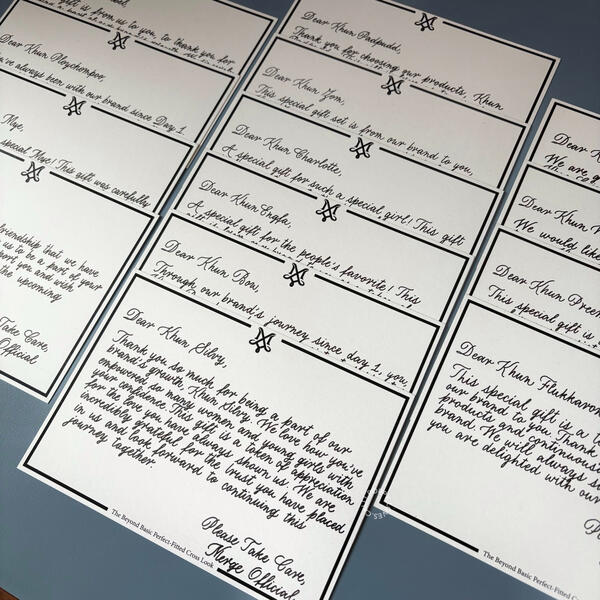 gift is from us to you, to thank you for
Dear Khun Ploychompoo,
You've always been with our brand since Day 1.
Mye,
special Mye! This gift was carefully
friendship that we have
us to be a part of your
port you and wish
the upcoming
Take Care,
Official
Dear Khun Padpudd,
Thank you for choosing our products, Khun
Dear Khun Zom,
This special gift set is from our brand to you,
Dear Khun Charlotte,
A special gift for such a special girl! This gift
Dear Khun Engfa,
A special gift for the people's favorite! This
Dear Khun Bow,
Through our brand's journey since day 1, you
Dear Khun Silvy,
Thank you so much for being a part of our
brand's growth, Khun Silvy. We love how you've
empowered so many women and young girls with
your confidence. This gift is a token of appreciation
for the love you have always shown us. We are
incredibly grateful for the trust you have placed
in us and look forward to continuing this
journey together.
Please Take Care,
Merge Official
The Beyond Basic Perfect-Fitted Cross Look
Dear
We are
Dear Khun
We would like
Dear Khun Preem
This special gift is
Dear Khun
This special gift is a
our brand to you. Thank
products and continuous
brand. We will always
you are delighted with our
The Beyond Basic Perfect-Fitted